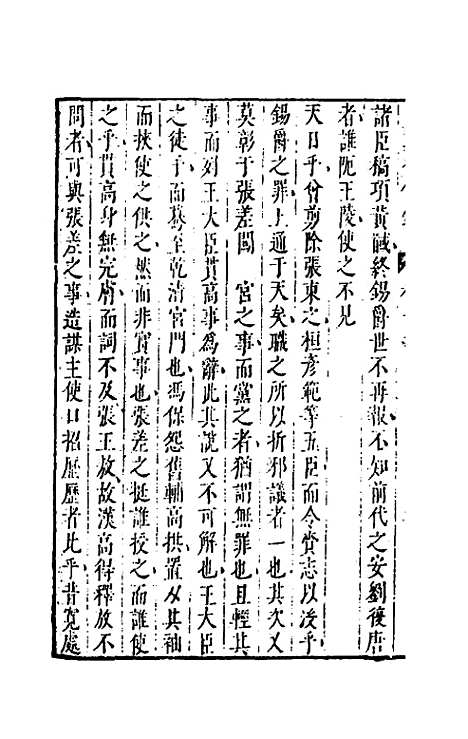 諸臣槁項黃馘終錫爵世不再報不知前代之安劉復唐
者誰阨王陵使之不見
天日乎曾剪除張柬之桓彥範等五臣而令賫志以沒乎
錫爵之罪上通于天矣職之所以折邪議者一也其次又
莫彰于張差闖 宮之事而黨之者猶謂無罪也且輕其
事而列王大臣貫高事為辭此其說又不可解也王大臣
之徒手而驀至乾清宮門也馮保怨舊輔高拱置刃其袖
而挾使之供之然而非實事也張差之挺誰授之而誰使
之乎貫高身無完膚而詞不及張王敖故漢高得釋放不
問者可與張差之事造謀主使口招歷歷者比乎昔寬處